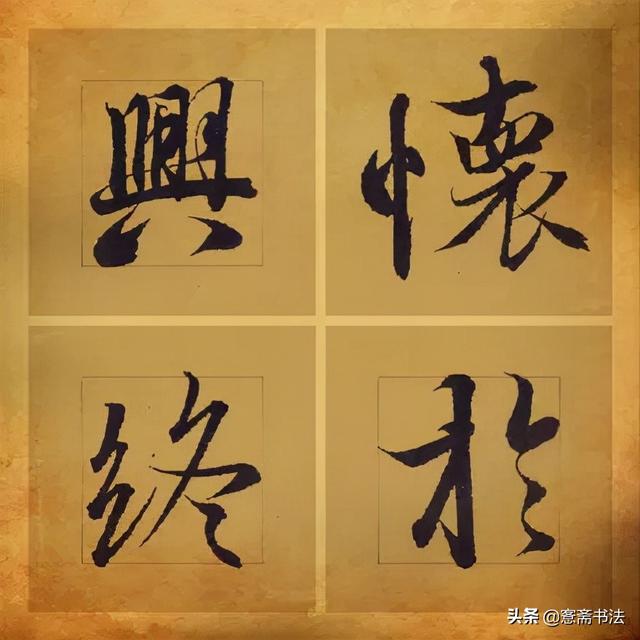 興懷
終於
头条 @愙斋书法